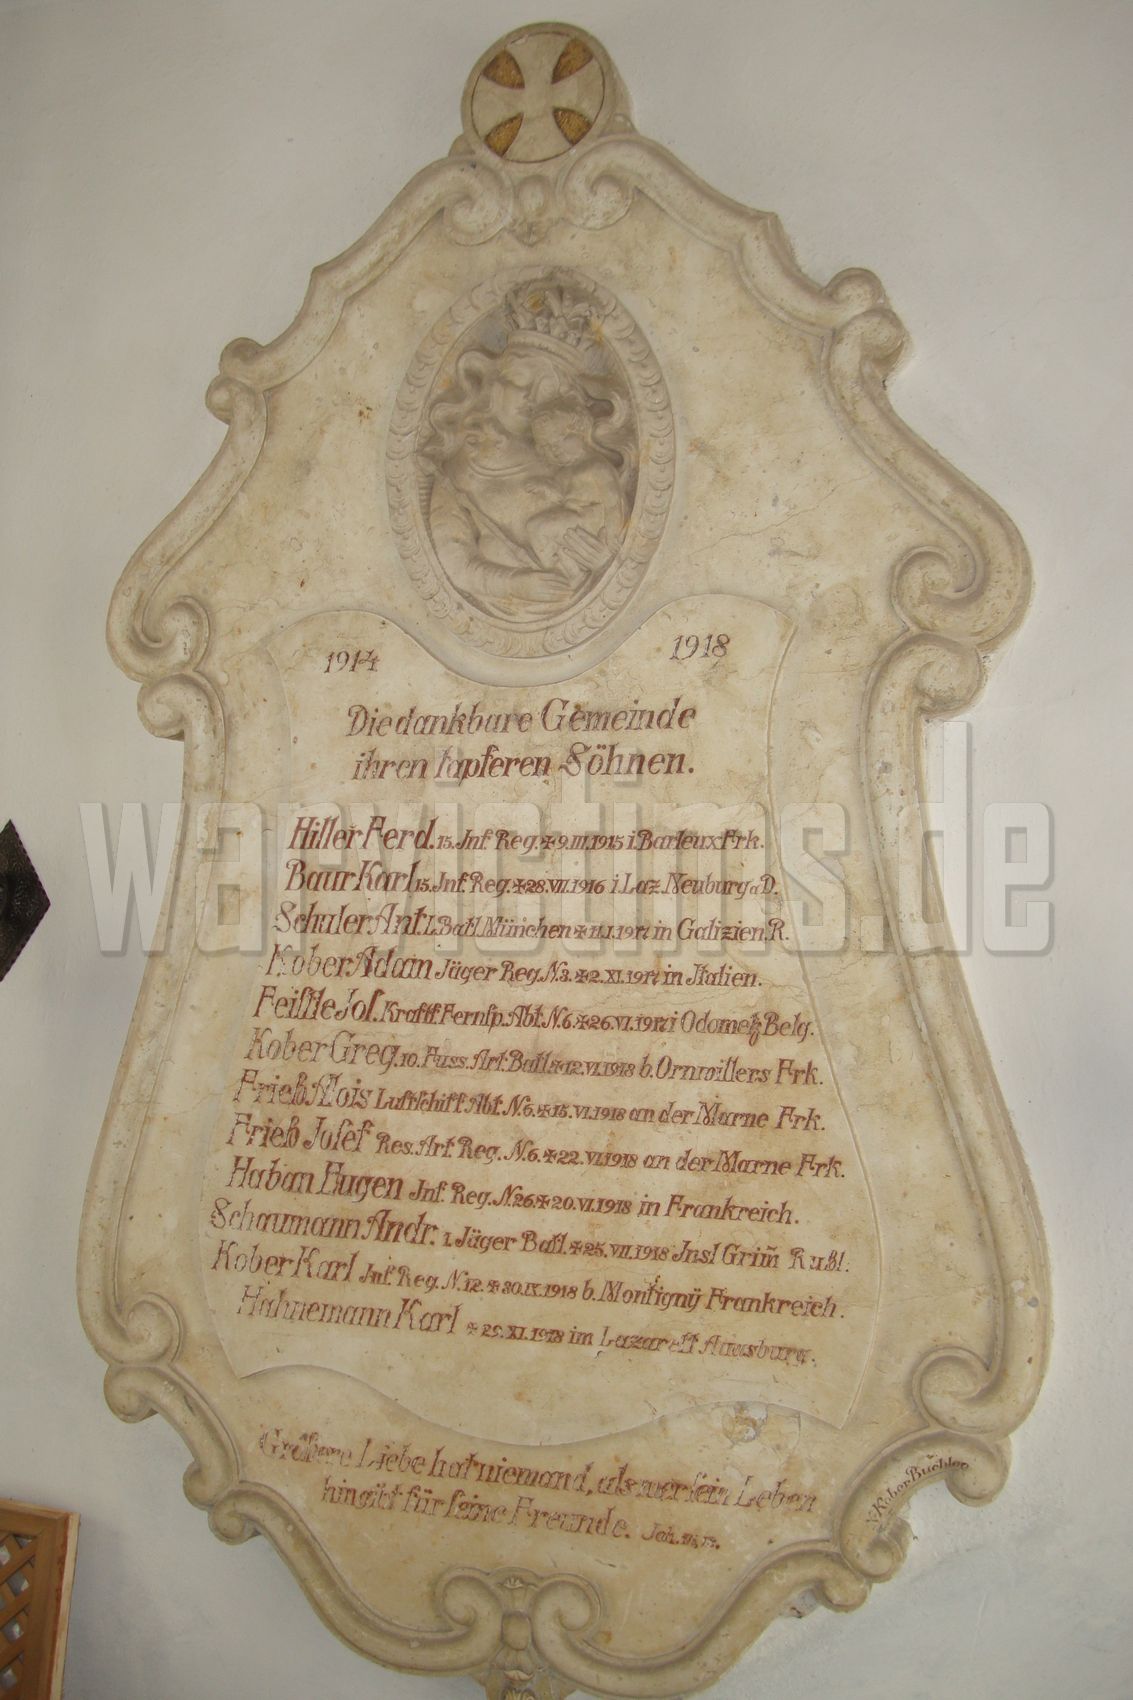 1914 1918
Die dankbare Gemeinde
ihren tapferen Söhnen.
Hiller Ferd. 15. Inf. Reg. ✠ 9.III.1915 i. Barleux Frk.
Baur Karl 15. Inf. Reg. ✠ 28.VII.1916 i. Laz. Neuburg a D.
Schuler Ant. L. Batl. München ✠ 11.I.1917 in Galizien. R.
Kober Adam Jäger Reg. N.3. ✠ 2.XI.1917 in Italien.
Feistle Jos. Kraftf. Fernsp. Abt. N.6. ✠ 26.VI.1917 i Odometz Belg.
Kober Greg. 10. Fuss. Art. Batl. ✠ 12.VI.1918 b. Ornwillers Frk.
Frieß Alois Luftschiff. Abt. N.6. ✠ 15.VI.1918 an der Marne Frk.
Frieß Josef Res. Art. Reg. N.6. ✠ 22.VI.1918 an der Marne Frk.
Haban Eugen Inf. Reg. N.26. ✠ 20.VI.1918 in Frankreich.
Schaumann Andr. 1. Jäger Batl. ✠ 25.VII.1918 Insl Grim̄ Rußl.
Kober Karl Inf. Reg. N.12. ✠ 30.IX.1918 b. Montigny Frankreich.
Hahnemann Karl ✠ 29.XI.1918 im Lazarett Augsburg.
Größere Liebe hat niemand, als wer sein Leben
hingibt für seine Freunde. Joh.
v. Kober Büchloe
warvictims.de